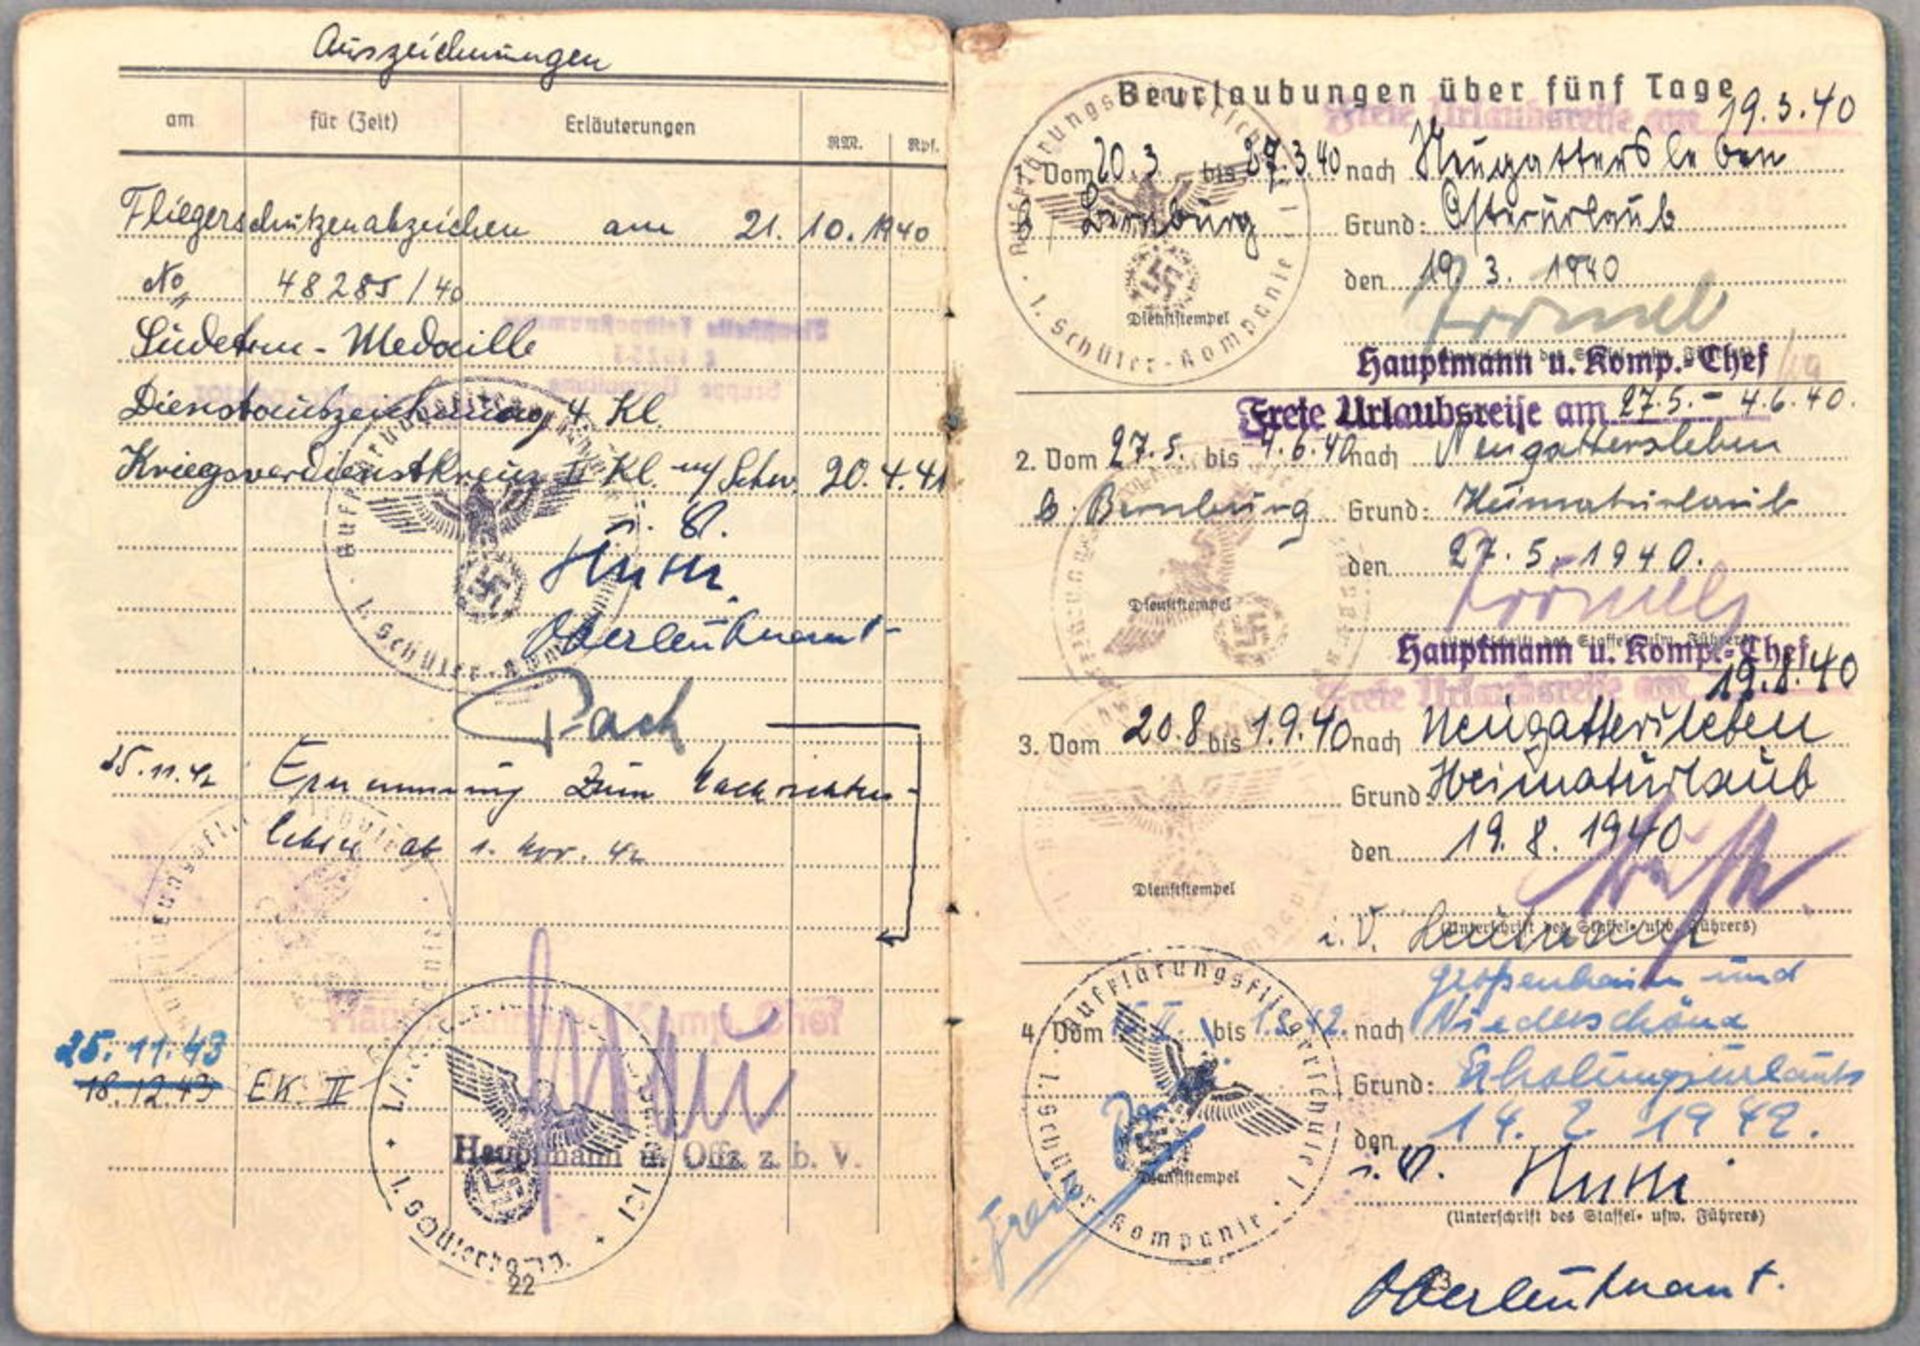 Auszeichnungen
am für (Zeit) Erläuterungen RM. Rpf.
Fliegerschützenabzeichen am 21. 10. 1940
No 48285/40
Sudeten-Medaille
Dienstauszeichnung 4 Kl.
Kriegsverdienstkreuz II Kl. m/ Schw. 20.4.41
Oberleutnant
25.11.42 Ernennung zum Nachrichten-
ab 1. Nov. 42
Hauptmann Komp. Chef
25.11.43
18.12.43 EK. II
Hauptmann u. Offz. z. b. V.
1. Schülerkomp.
22
Beurlaubungen über fünf Tage
Freie Urlaubsreise am 19.3.40
1. Vom 20.3. bis 27.3.40 nach Neugattersleben
b. Bernburg Grund: Osterurlaub
den 19. 3. 1940
Dienststempel
Hauptmann u. Komp.-Chef
Freie Urlaubsreise am 27.5.- 4.6.40.
2. Vom 27.5. bis 4.6.40 nach Neugattersleben
b. Bernburg Grund: Heimaturlaub
den 27.5.1940.
Dienststempel
(Unterschrift des Staffel- usw. Führers)
Hauptmann u. Komp.-Chef
Freie Urlaubsreise am 19.8.40
3. Vom 20.8 bis 1.9.40 nach Neugattersleben
Grund: Heimaturlaub
den 19. 8. 1940
Dienststempel
(Unterschrift des Staffel- usw. Führers)
i.V.
Großenhain und
4. Vom bis nach Niederschöna
Grund: Erholungsurlaub
den 14. 2. 1942.
Dienststempel
i.V.
(Unterschrift des Staffel- usw. Führers)
Oberleutnant.
Aufklärungsfliegerschule 1
1. Schüler-Kompanie